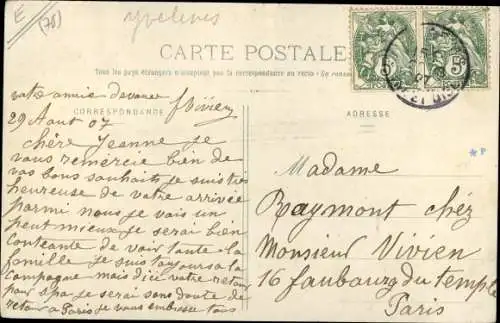 E
(78)
yvelines
CARTE POSTALE
Tous les pays étrangers n'acceptent pas la correspondance au recto
CORRESPONDANCE
ADRESSE
votre amie devouée
f Vivien
29 Aout 07
chère Jeanne je
vous remércie bien de
vos bons souhaits je suis très
heureuse de votre arrivée
parmi nous je vais un
peut mieux je serai bien
contente de voir toute la
famille je suis toujours a la
campagne mais d'ici votre retour
pour spa je serai sans doute de
retour a Paris je vous embrasse tous
Madame
Raymont chéz
Monsieur Vivien
16 faubourg du temple
Paris
5
5
*P